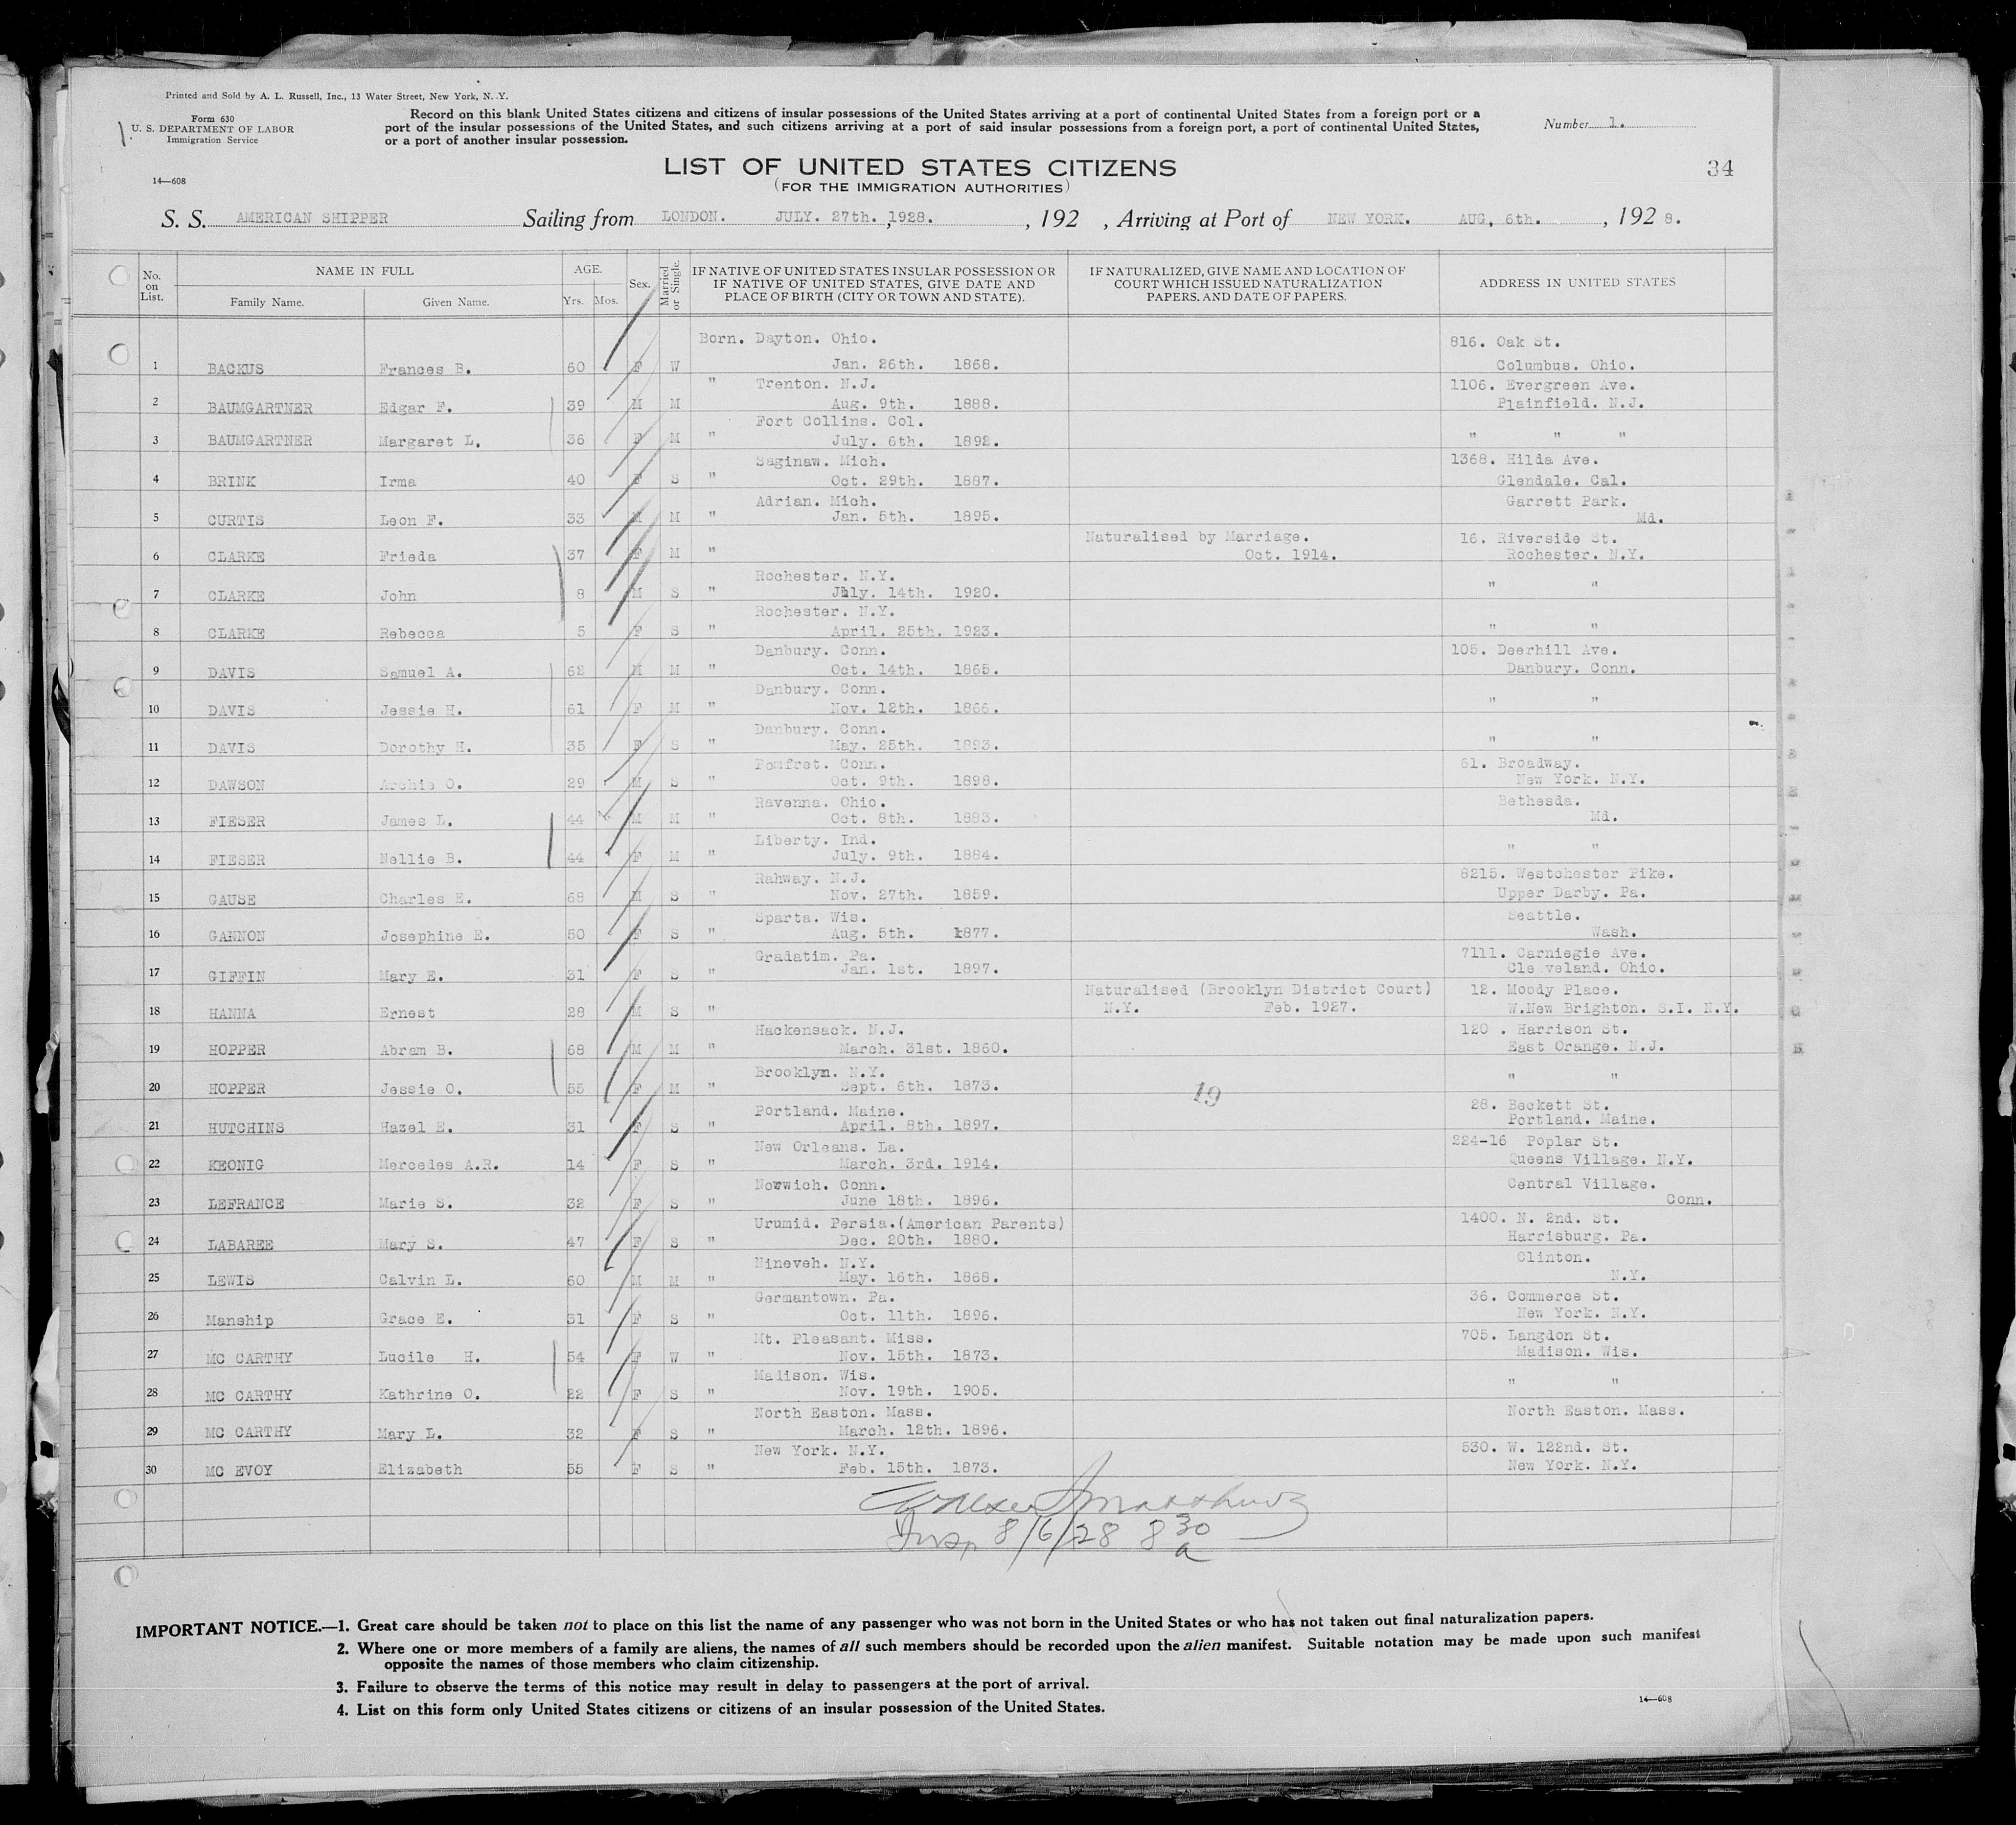 Printed and Sold by A. L. Russell, Inc., 13 Water Street, New York, N. Y.
Form 630
U. S. DEPARTMENT OF LABOR
Immigration Service
14—608
Record on this blank United States citizens and citizens of insular possessions of the United States arriving at a port of continental United States from a foreign port or a
port of the insular possessions of the United States, and such citizens arriving at a port of said insular possessions from a foreign port, a port of continental United States,
or a port of another insular possession.
Number 1.
LIST OF UNITED STATES CITIZENS
(FOR THE IMMIGRATION AUTHORITIES)
34
S. S. AMERICAN SHIPPER Sailing from LONDON. JULY. 27th. 1928. , 192 , Arriving at Port of NEW YORK. AUG, 6th. , 1928.
No. on List. NAME IN FULL Family Name. Given Name. AGE. Yrs. Mos. Sex. Married or Single. IF NATIVE OF UNITED STATES INSULAR POSSESSION OR IF NATIVE OF UNITED STATES, GIVE DATE AND PLACE OF BIRTH (CITY OR TOWN AND STATE). IF NATURALIZED, GIVE NAME AND LOCATION OF COURT WHICH ISSUED NATURALIZATION PAPERS, AND DATE OF PAPERS. ADDRESS IN UNITED STATES
Born. Dayton. Ohio. 816. Oak St.
1 BACKUS Frances B. 60 F W Jan. 26th. 1868. Columbus. Ohio.
" Trenton. N.J. 1106. Evergreen Ave.
2 BAUMGARTNER Edgar F. 39 M M Aug. 9th. 1888. Plainfield. N.J.
Fort Collins. Col.
3 BAUMGARTNER Margaret L. 36 F M " July. 6th. 1892. " " "
Saginaw. Mich. 1368. Hilda Ave.
4 BRINK Irma 40 F S " Oct. 29th. 1887. Glendale. Cal.
Adrian. Mich. Garrett Park.
5 CURTIS Leon F. 33 M M " Jan. 5th. 1895. Md.
Naturalised by Marriage. 16. Riverside St.
6 CLARKE Frieda 37 F M " Oct. 1914. Rochester. N.Y.
Rochester. N.Y.
7 CLARKE John 8 M S " July. 14th. 1920. " "
Rochester. N.Y.
8 CLARKE Rebecca 5 F S " April. 25th. 1923. " "
Danbury. Conn. 105. Deerhill Ave.
9 DAVIS Samuel A. 62 M M " Oct. 14th. 1865. Danbury. Conn.
Danbury. Conn.
10 DAVIS Jessie H. 61 F M " Nov. 12th. 1866. " "
Danbury. Conn.
11 DAVIS Dorothy H. 35 F S " May. 25th. 1893. " "
Pomfret. Conn. 61. Broadway.
12 DAWSON Archie O. 29 M S " Oct. 9th. 1898. New York. N.Y.
Ravenna. Ohio. Bethesda.
13 FIESER James L. 44 M M " Oct. 8th. 1883. Md.
Liberty. Ind.
14 FIESER Nellie B. 44 F M " July. 9th. 1884. " "
Rahway. N.J. 8215. Westchester Pike.
15 GAUSE Charles E. 68 M S " Nov. 27th. 1859. Upper Darby. Pa.
Sparta. Wis. Seattle.
16 GANNON Josephine E. 50 F S " Aug. 5th. 1877. Wash.
Gradatim. Pa. 7111. Carniegie Ave.
17 GIFFIN Mary E. 31 F S " Jan. 1st. 1897. Cleaveland. Ohio.
Naturalised (Brooklyn District Court) 12. Moody Place.
18 HANNA Ernest 28 M S " N.Y. Feb. 1927. W.New Brighton. S.I. N.Y.
Hackensack. N.J. 120 . Harrison St.
19 HOPPER Abram B. 68 M M " March. 31st. 1860. East Orange. N.J.
Brooklyn. N.Y.
20 HOPPER Jessie O. 55 F M " Sept. 6th. 1873. 19 " "
Portland. Maine. 28. Beckett St.
21 HUTCHINS Hazel E. 31 F S " April. 8th. 1897. Portland. Maine.
New Orleans. La. 224-16 Poplar St.
22 KEONIG Mercedes A.R. 14 F S " March. 3rd. 1914. Queens Village. N.Y.
Norwich. Conn. Central Village.
23 LEFRANCE Marie S. 32 F S " June 18th. 1896. Conn.
Urumid. Persia.(American Parents) 1400. N. 2nd. St.
24 LABAREE Mary S. 47 F S " Dec. 20th. 1880. Harrisburg. Pa.
Nineveh. N.Y. Clinton.
25 LEWIS Calvin L. 60 M M " May. 16th. 1868. N.Y.
Germantown. Pa. 36. Commerce St.
26 Manship Grace E. 31 F S " Oct. 11th. 1896. New York. N.Y.
Mt. Pleasant. Miss. 705. Langdon St.
27 MC CARTHY Lucile H. 54 F W " Nov. 15th. 1873. Madison. Wis.
Madison. Wis.
28 MC CARTHY Kathrine O. 22 F S " Nov. 19th. 1905. " "
North Easton. Mass. North Easton. Mass.
29 MC CARTHY Mary L. 32 F S " March. 12th. 1896.
New York. N.Y. 530. W. 122nd. St.
30 MC EVOY Elizabeth 55 F S " Feb. 15th. 1873. New York. N.Y.
Insp 8/6/28 8 30 a
IMPORTANT NOTICE.—1. Great care should be taken not to place on this list the name of any passenger who was not born in the United States or who has not taken out final naturalization papers.
2. Where one or more members of a family are aliens, the names of all such members should be recorded upon the alien manifest. Suitable notation may be made upon such manifest
opposite the names of those members who claim citizenship.
3. Failure to observe the terms of this notice may result in delay to passengers at the port of arrival.
4. List on this form only United States citizens or citizens of an insular possession of the United States.
14—608